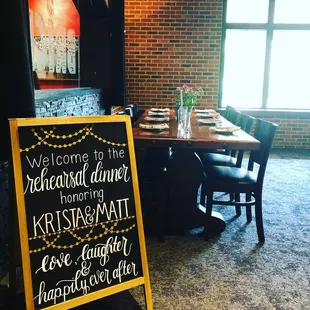 Welcome to the
rehearsal dinner
honoring
KRISTA & MATT
love, laughter
&
happily ever after